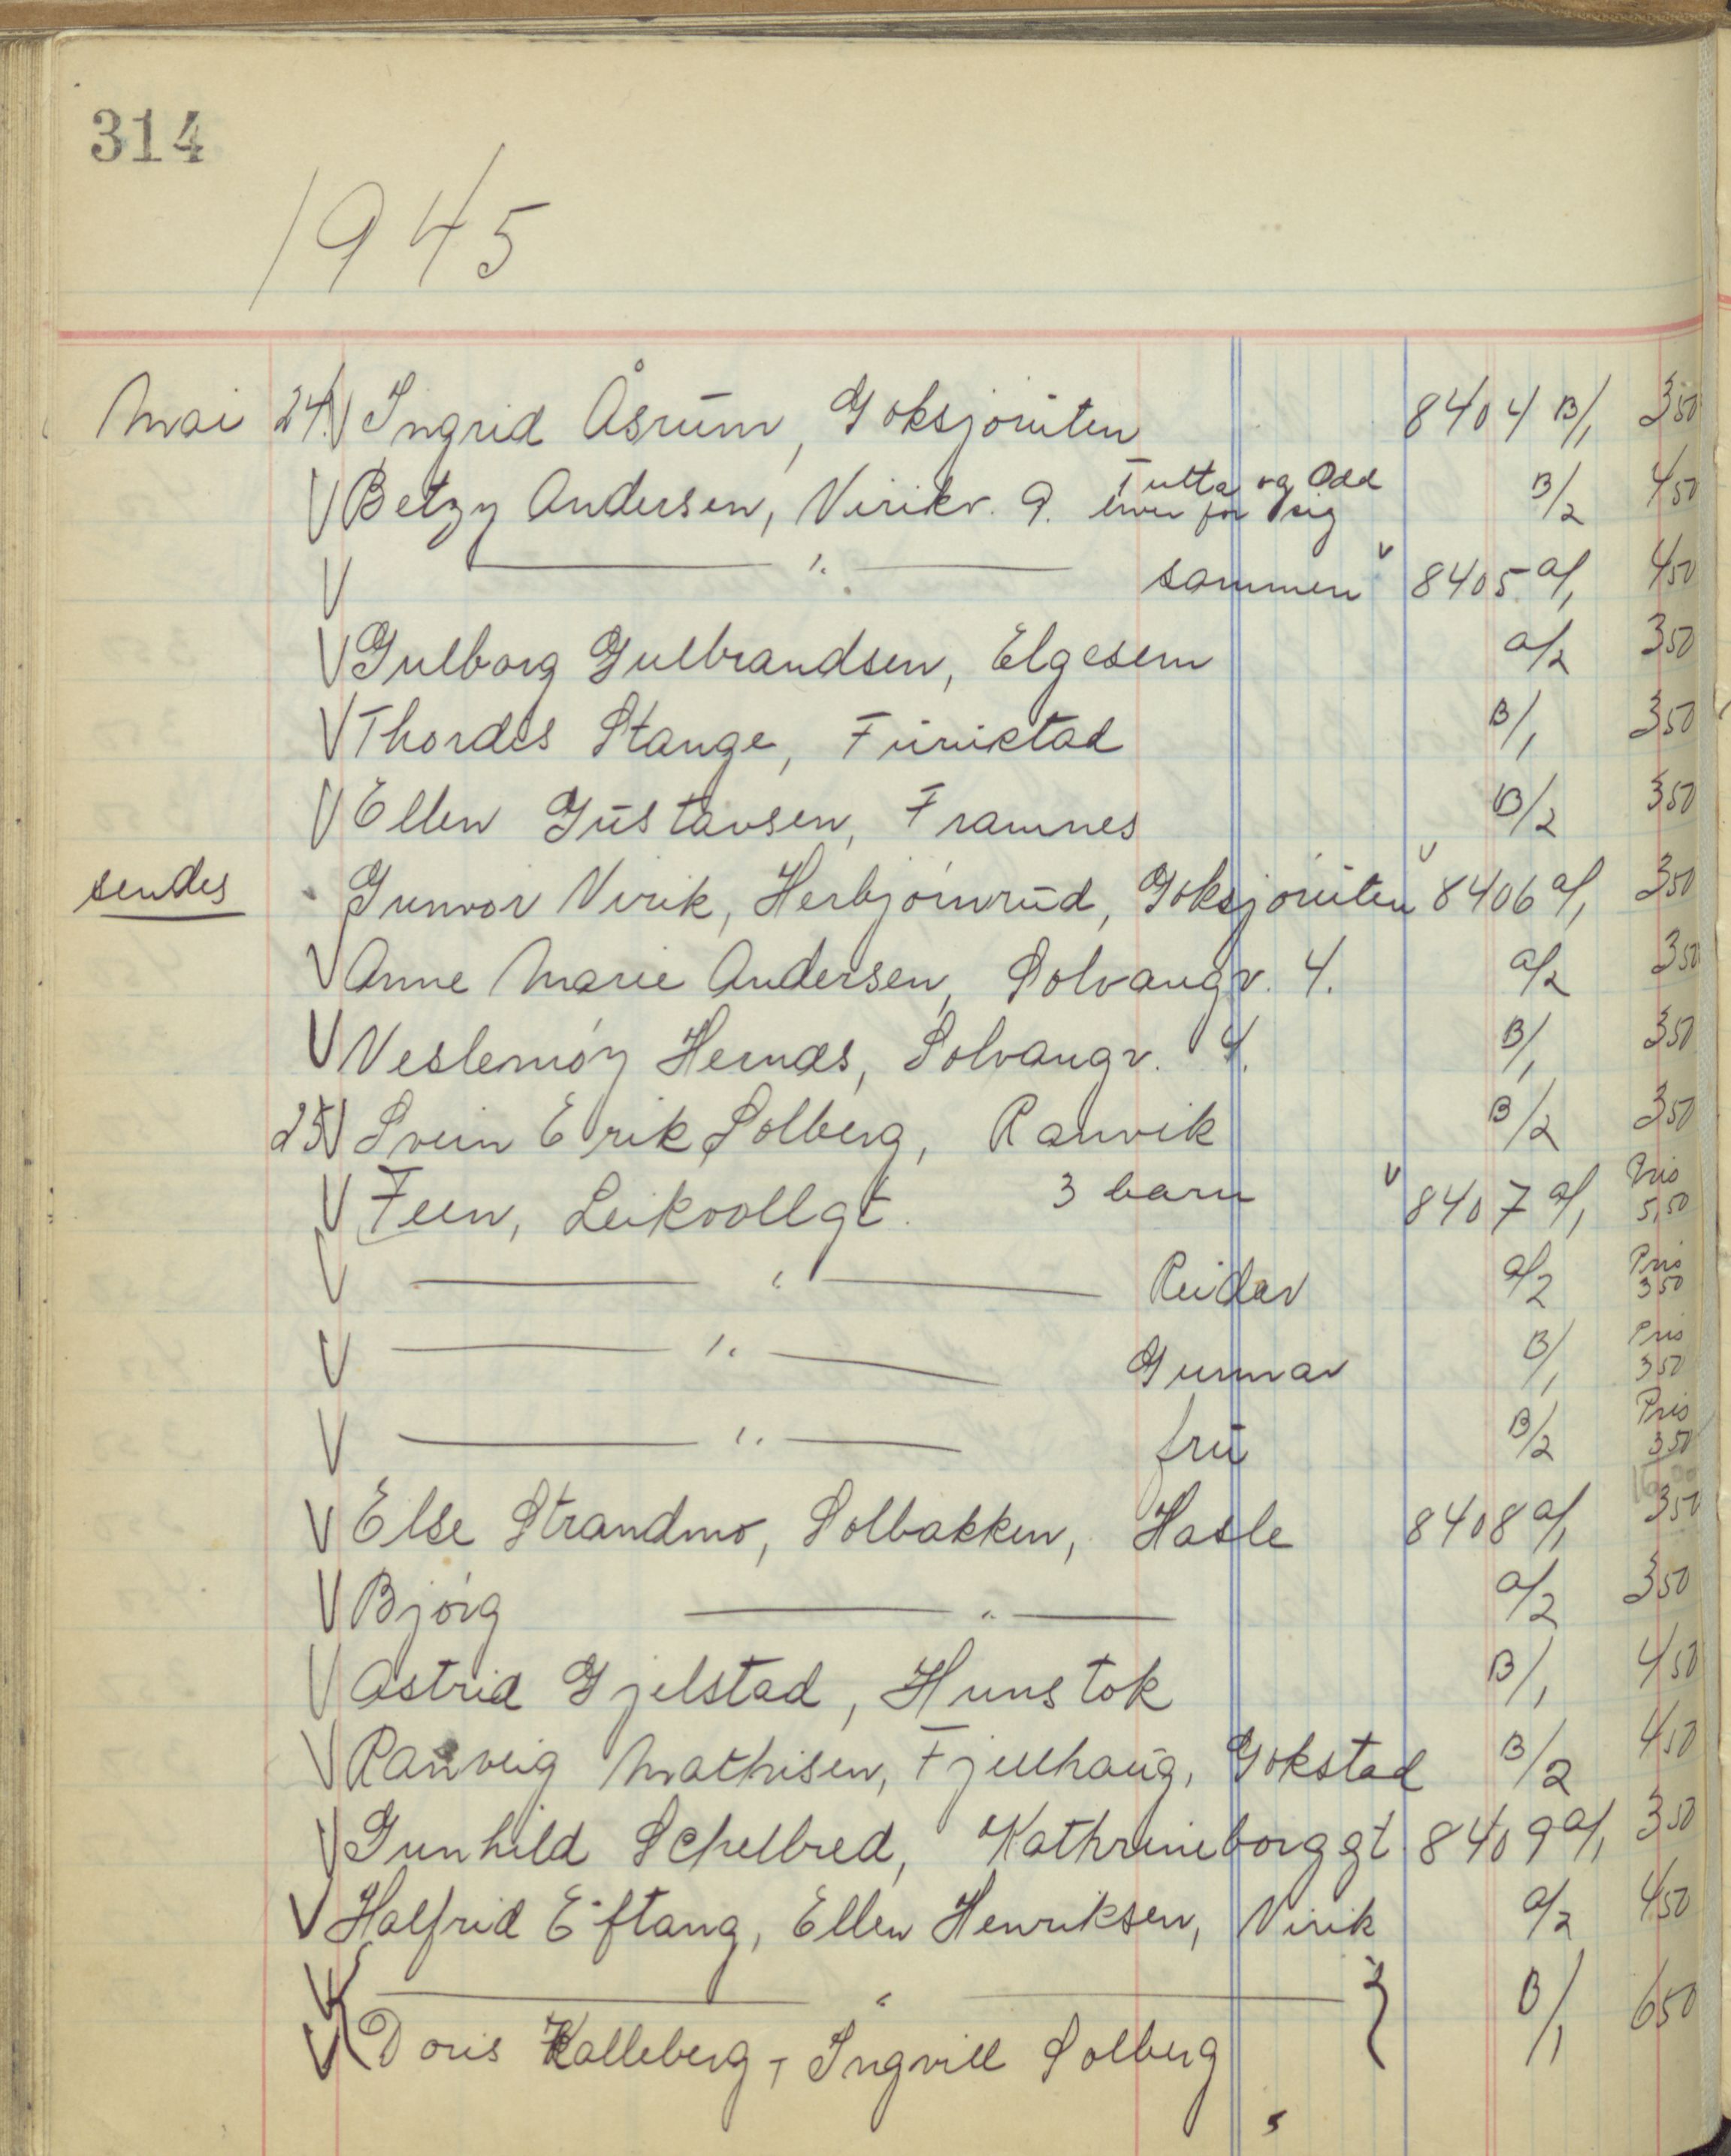 314
1945
Mai 24. V Ingrid Åsrum, Goksjøruten 8404 B/1 350
V Betzy Andersen, Virikv. 9. Tutta og Odd hver for sig B/2 450
V —— " —— sammen v 8405 a/1 450
V Gulborg Gulbrandsen, Elgesem a/2 350
V Thordis Stange, Furustad B/1 350
V Ellen Gustavsen, Framnes B/2 350
sendes Gunvor Virik, Herbjørnrud, Goksjøruten v 8406 a/1 350
V Anne Marie Andersen, Solvangv. 4. a/2 350
V Veslemøy Hemås, Solvangv. 4. B/1 350
25 V Svein Erik Solberg, Ranvik B/2 350
V Feen, Leikvollgt. 3 barn v 8407 a/1 Pris 5,50
V —— " —— Reidar a/2 Pris 350
V —— " —— Gunnar B/1 Pris 350
V —— " —— fru B/2 Pris 350
V Else Strandmo, Solbakken, Hasle 8408 a/1 350
V Bjørg —— " —— a/2 350
V Astrid Gjelstad, Hunstok B/1 450
V Ranveig Mathisen, Fjellhaug, Gokstad B/2 450
V Gunhild Schelbred, Kathrineborggt 8409 a/1 350
V Halfrid Eftang, Ellen Henriksen, Virik a/2 450
V —— " —— B/1 650
V Doris Kalleberg, Ingvill Solberg